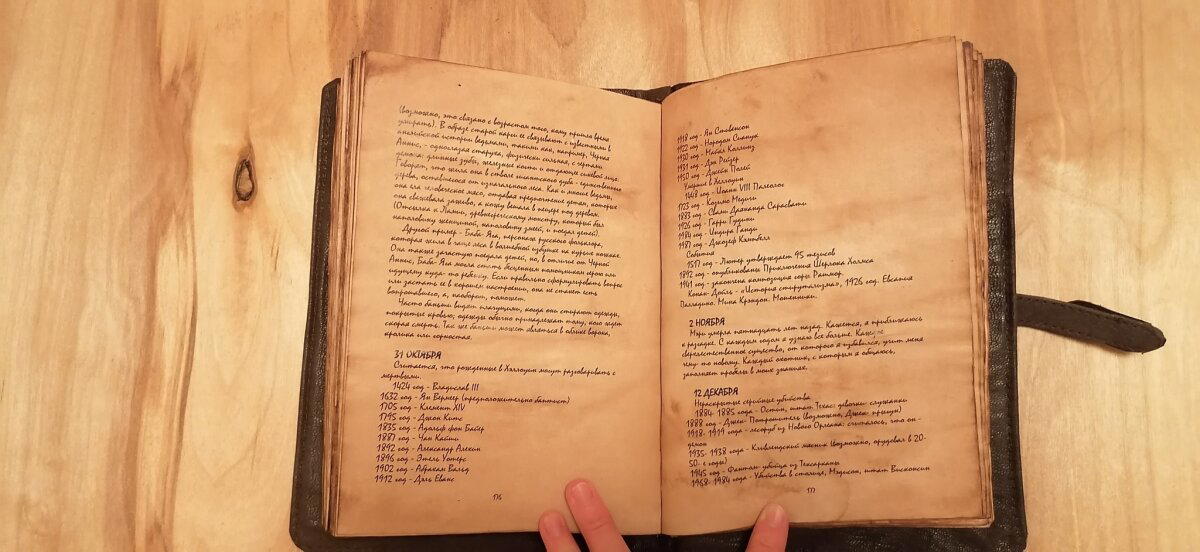 (возможно, это связано с возрастом того, кому пришло время
умирать). В образе старой карги ее связывают с известными в
английской истории ведьмами, такими как, например, Черная
Аннис, - одноглазая старуха, физически сильная, с чертами
демона: длинные зубы, железные когти и отдающее синевой лицо.
Говорят, что жила она в стволе гигантского дуба - единственного
дерева, оставшегося от изначального леса. Как и многие ведьмы,
она ела человеческое мясо, отдавая предпочтение детям, которых
она свежевала заживо, а кожу вешала в пещере под деревом.
(Отсылка к Ламии, древнегреческому монстру, который был
наполовину женщиной, наполовину змеей, и поедал детей).
Другой пример - Баба-Яга, персонаж русского фольклора,
которая жила в чаще леса в волшебной избушке на курьих ножках.
Она также зачастую поедала детей, но, в отличие от Черной
Аннис, Баба-Яга могла стать бесценным помощником герою или
идущему куда-то ребенку. Если правильно сформулировать вопрос
или застать ее в хорошем настроении, она не станет есть
вопрошавшего, а, наоборот, поможет.
Часто баньши видят плачущими, когда они стирают одежды,
покрытые кровью; одежды обычно принадлежат тому, кого ждет
скорая смерть. Так же баньши может являться в облике ворона,
кролика или горностая.
31 ОКТЯБРЯ
Считается, что рожденные в Хэллоуин могут разговаривать с
мертвыми.
1424 год - Владислав III
1632 год - Ян Вермеер (предположительно баптист)
1705 год - Клемент XIV
1795 год - Джон Китс
1835 год - Адольф фон Байер
1887 год - Чан Кайши
1892 год - Александр Алехин
1896 год - Этель Уотерс
1902 год - Абрахам Вальд
1912 год - Дэль Еванс
176
1918 год - Ян Стивенсон
1922 год - Нородом Сианук
1930 год - Майкл Коллинз
1931 год - Дэн Рейзер
1950 год - Джейн Полей
Умершие в Хэллоуин
1448 год - Иоанн VIII Палеолог
1723 год - Козимо Медичи
1883 год - Свами Даянанда Сарасвати
1926 год - Гарри Гудини
1984 год - Индира Ганди
1987 год - Джозеф Кэмпбелл
События
1517 год - Лютер утверждает 95 тезисов
1892 год - опубликованы Приключения Шерлока Холмса
1941 год - закончена композиция горы Рашмор.
Конан-Дойль - «История спиритуализма», 1926 год. Евсапия
Палладино. Мина Крэндон. Мошенники.
2 НОЯБРЯ
Мэри умерла пятнадцать лет назад. Кажется, я приближаюсь
к разгадке. С каждым годом я узнаю все больше. Каждое
сверхъестественное существо, от которого я избавился, учит меня
чему-то новому. Каждый охотник, с которым я общаюсь,
заполняет пробелы в моих знаниях.
12 ДЕКАБРЯ
Нераскрытые серийные убийства
1884- 1885 года - Остин, штат Техас: девочки- служанки
1888 год - Джек- Потрошитель (возможно, Джек- прыгун)
1918- 1919 года - лесоруб из Нового Орлеана: считалось, что он -
демон
1935- 1938 года - Кливлендский мясник (возможно, орудовал в 20-
50- е годы)
1945 год - Фантом- убийца из Тексарканы
1968- 1984 года - Убийства в столице, Мэдисон, штат Висконсин
177